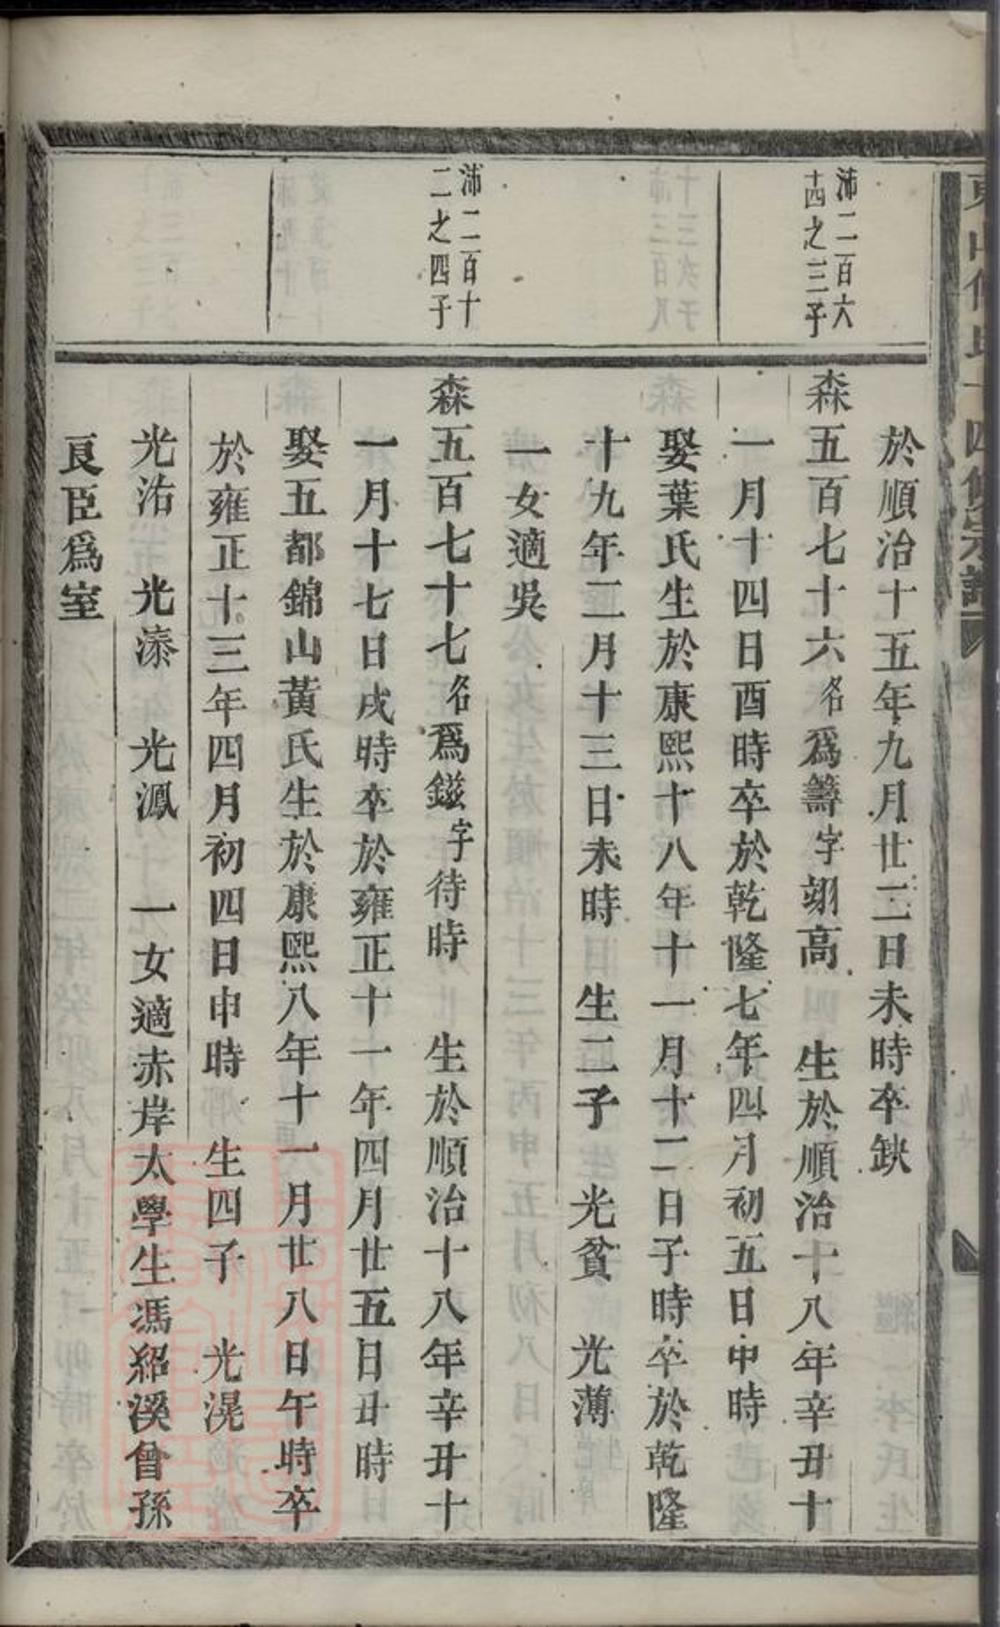 沛二百六
十四之三子
沛二百十
二之四子
於順治十五年九月廿二日未時卒鈌
森五百七十六名爲籌字翊高 生於順治十八年辛丑十
一月十四日酉時卒於乾隆七年四月初五日申時
娶葉氏生於康熙十八年十一月十二日子時卒於乾隆
十九年二月十三日未時 生二子 光貧 光薄
一女適吳
森五百七十七名爲鎡字待時 生於順治十八年辛丑十
一月十七日戌時卒於雍正十一年四月廿五日丑時
娶五都錦山黃氏生於康熙八年十一月廿八日午時卒
於雍正十三年四月初四日申時 生四子 光滉
光洁 光溙 光渢 一女適赤岸太學生馮紹溪曾孫
良臣爲室